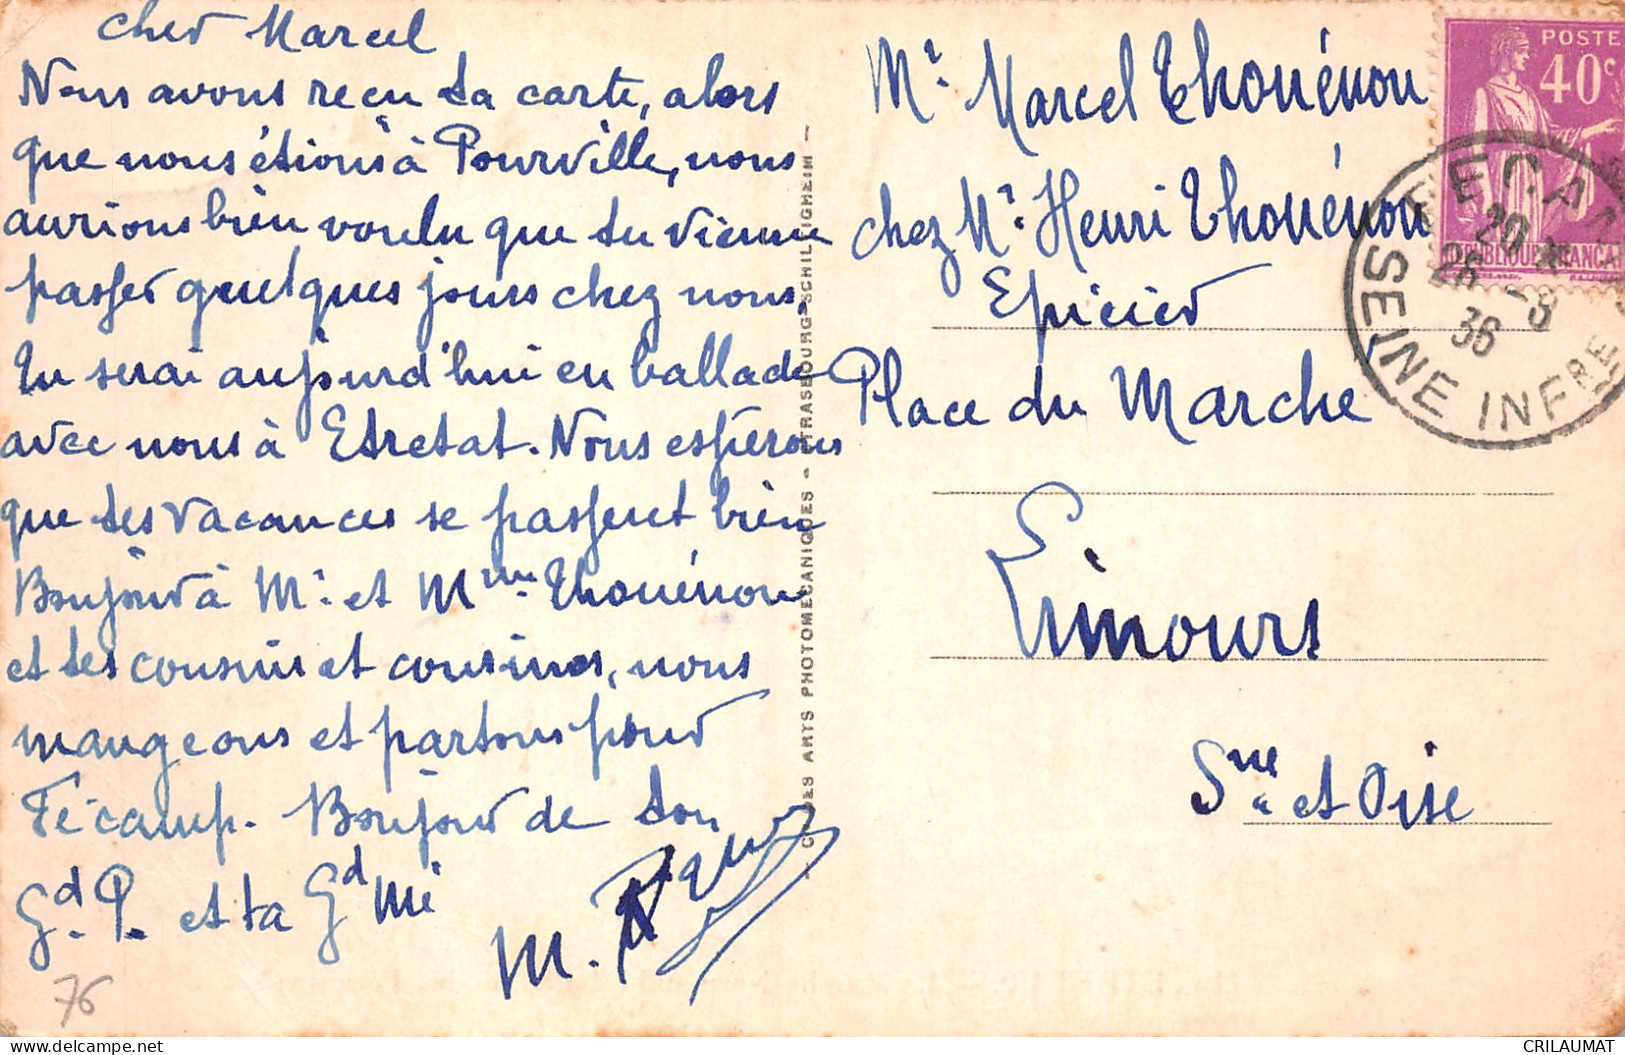 cher Marcel
Nous avons reçu ta carte, alors
que nous étions à Pourville, nous
aurions bien voulu que tu vienne
passer quelques jours chez nous,
tu serai aujourd'hui en ballade
avec nous à Etretat. Nous espérons
que tes vacances se passent bien
Bonjour à Mr. et Mme. Thouénon
et tes cousins et cousines, nous
mangeons et partons pour
Fécamp. Bonjour de ton
Gd. P. et ta Gd Mé
M.
76
DES ARTS PHOTOMECANIQUES - STRASBOURG-SCHILTIGHEIM -
Mr. Marcel Thouénon
chez Mr. Henri Thouénon
Epicier
Place du Marche
Limours
Sne et Oise
POSTE
40c
REPUBLIQUE FRANCAI
FECAM
20
26 -8
36
SEINE INFRE
CRILAUMAT